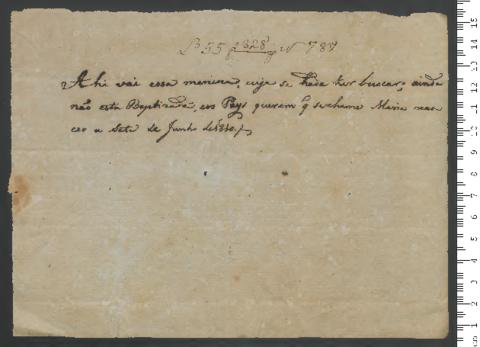 Lº 55 1828 Nº 788
Ahi vai essa menina, cuja se hade hir buscar, ainda
não esta Baptizada, os Pays querem q̃ se chame Maria nas-
ceo a Sete de Junho de